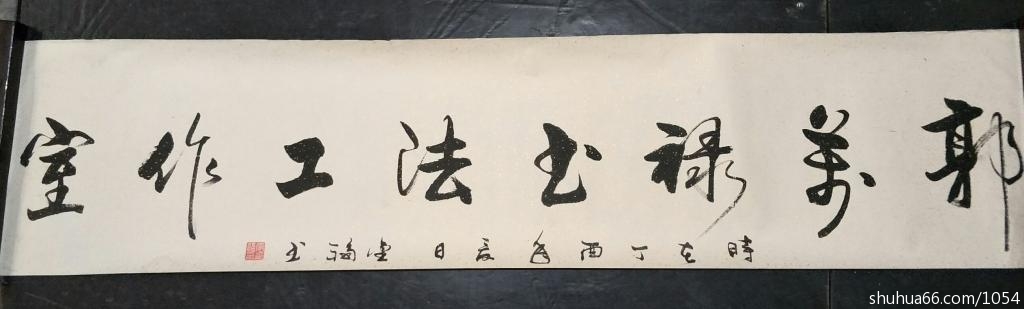 郭萬禄书法工作室
時在丁酉年夏日 福书
shuhua66.com/1054